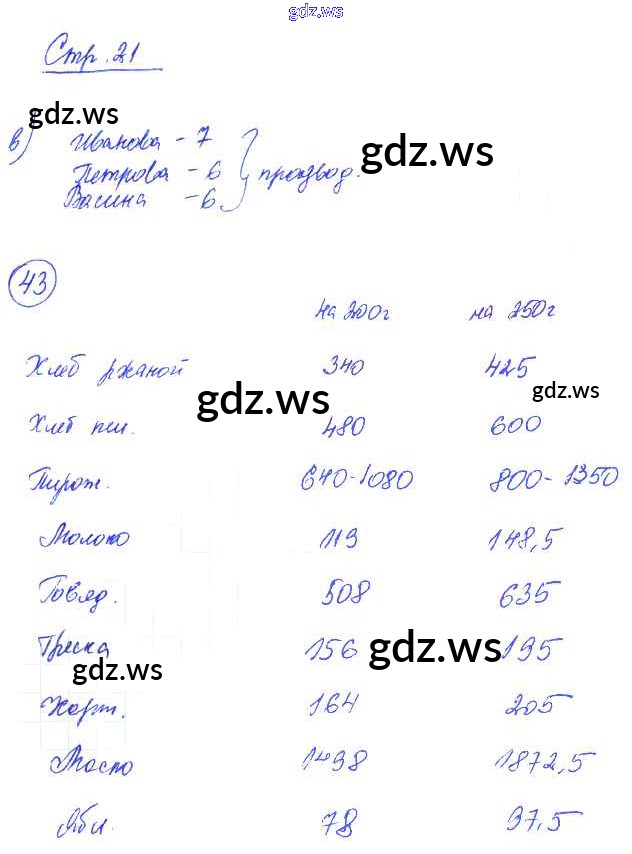 gdz.ws
Стр. 21
gdz.ws
в) Иванова - 7
Петрова - 6 } производ.
Васина - 6
gdz.ws
43
на 200г на 250г
Хлеб ржаной 340 425
gdz.ws
gdz.ws
Хлеб пш. 480 600
Пирож. 640-1080 800-1350
Молоко 119 148,5
Говяд. 508 635
Треска 156 195
gdz.ws
gdz.ws
Карт. 164 205
Масло 1498 1872,5
Ябл. 78 97,5